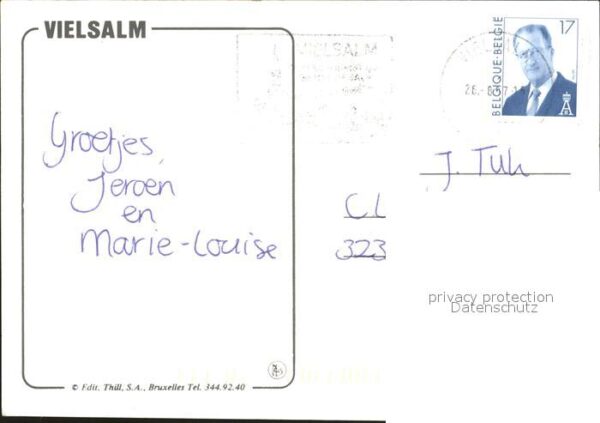 VIELSALM
VIELSALM
17
BELGIQUE-BELGIË
Groetjes,
Jeroen
en
Marie-Louise
J. Tuh
CL
323
privacy protection
Datenschutz
© Edit. Thill, S.A., Bruxelles Tel. 344.92.40